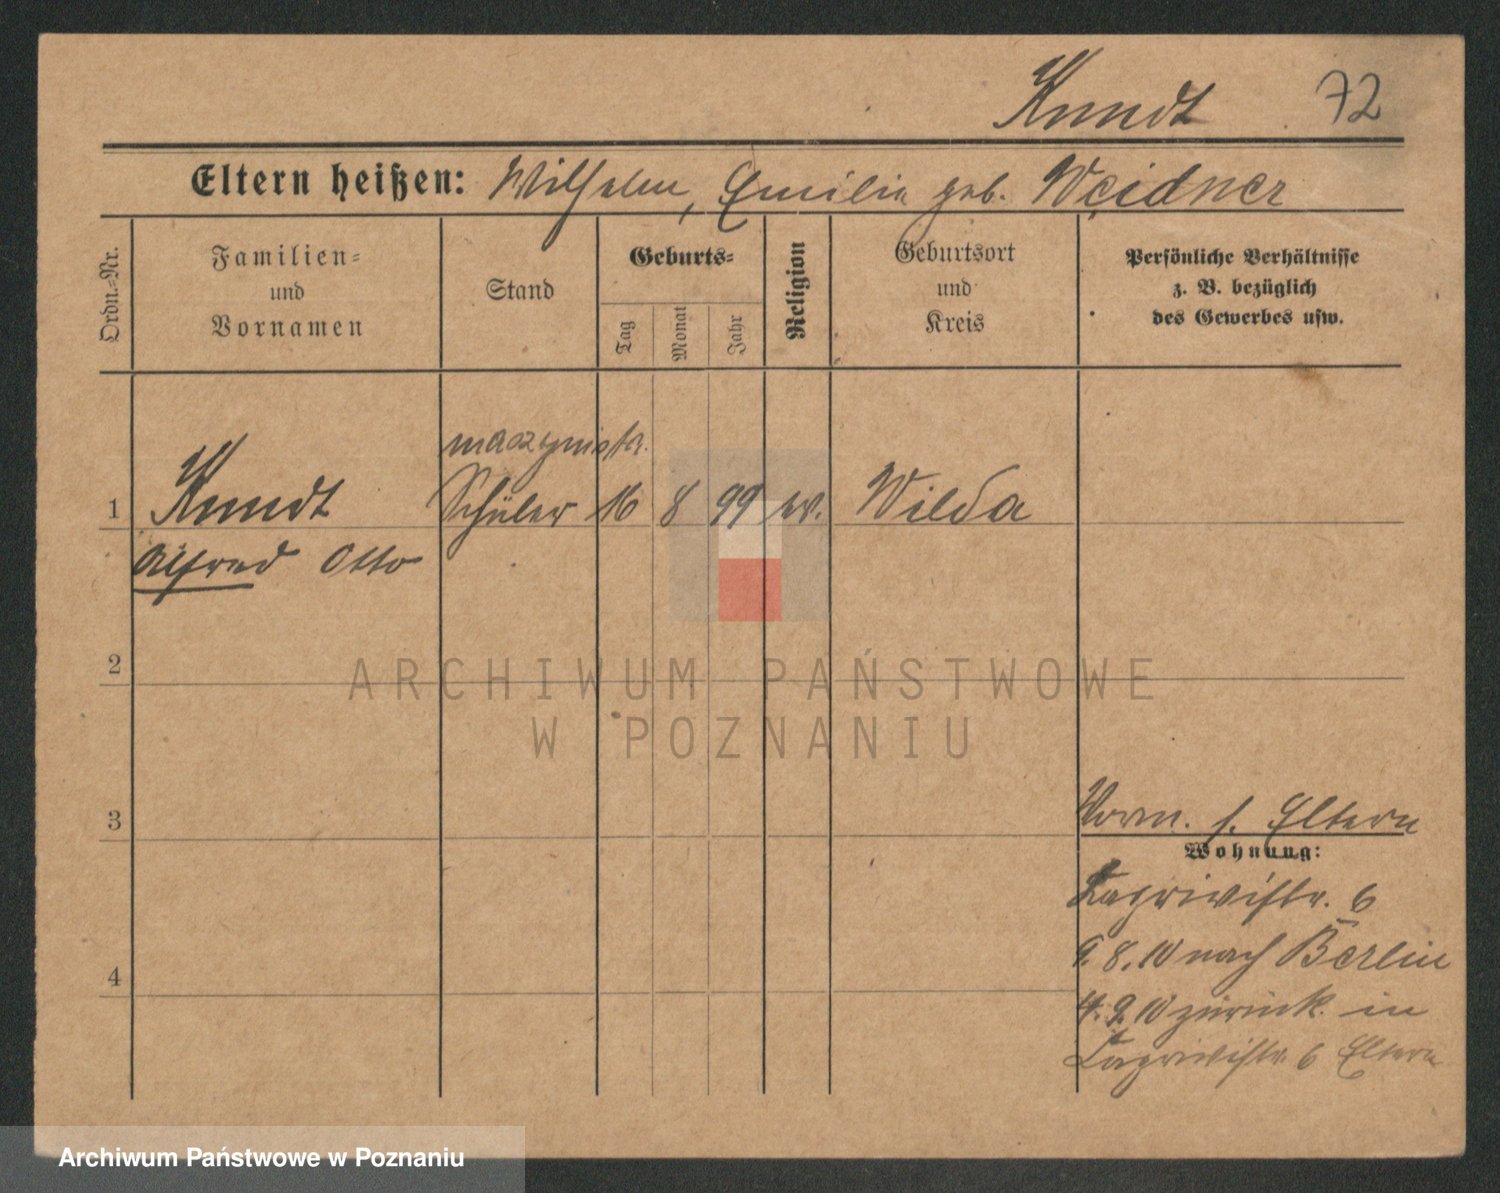 Kundt 72
Eltern heißen: Wilhelm, Emilie geb. Weidner
Ordn.-Nr.
Familien-
und
Vornamen
Stand
Geburts-
Tag
Monat
Jahr
Religion
Geburtsort
und
Kreis
Persönliche Verhältnisse
z. B. bezüglich
des Gewerbes usw.
maszynista.
1 Kundt Schüler 16 8 99 ev. Wilda
Alfred Otto
2
ARCHIWUM PAŃSTWOWE
W POZNANIU
3
Vorm. s. Eltern
Wohnung:
Caprivistr. 6
9.8.10 nach Berlin
4
4.9.10 zurück in
Caprivistr. 6 Eltern
Archiwum Państwowe w Poznaniu